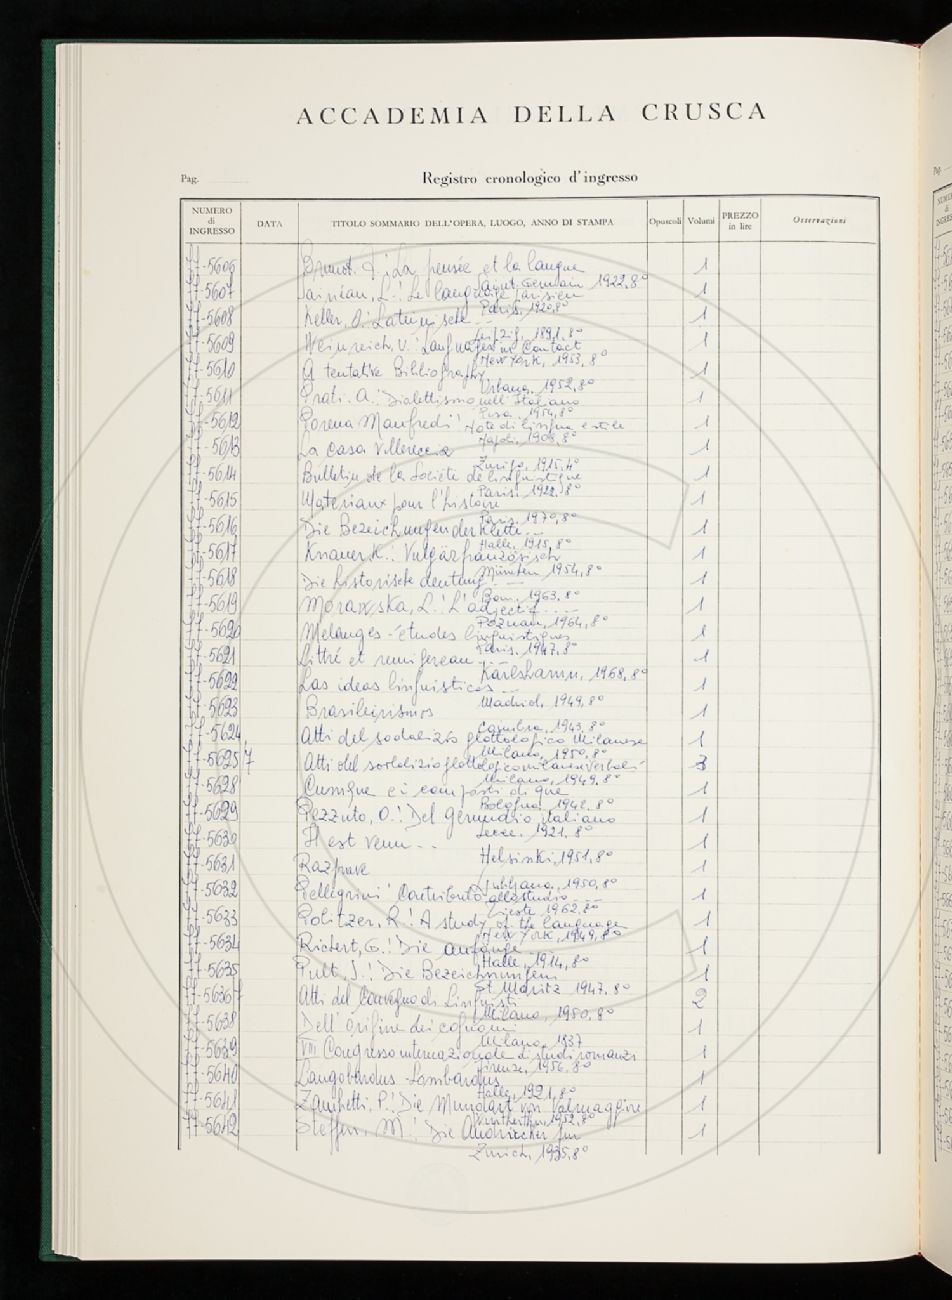 ACCADEMIA DELLA CRUSCA
Pag.
Registro cronologico d'ingresso
NUMERO di INGRESSO DATA TITOLO SOMMARIO DELL'OPERA, LUOGO, ANNO DI STAMPA Opuscoli Volumi PREZZO in lire Osservazioni
-5606 Brunot. F.: La pensée et la langue 1
1922, 8°
-5607 Sainéan, L.: Le langage parisien 1
Paris, 1920, 8°
-5608 Keller, O.: Lateinische... 1
Leipzig, 1891, 8°
-5609 Weinreich, U.: Languages in Contact 1
New York, 1953, 8°
-5610 A tentative Bibliography 1
Urbana, 1952, 8°
-5611 Prati. A.: Dialettismi nell'Italiano 1
Pisa, 1954, 8°
-5612 Porena Manfredi: Note di lingua e stile 1
Napoli, 1908, 8°
-5613 La casa villereccia 1
Zurigo, 1915, 4°
-5614 Bulletin de la Société de linguistique 1
Paris, 1922, 8°
-5615 Materiaux pour l'histoire 1
Paris, 1970, 8°
-5616 Die Bezeichnungen der Klette... 1
Halle, 1915, 8°
-5617 Knauer, K.: Vulgärfranzösisch 1
München 1954, 8°
-5618 Die historische deutung... 1
Bonn, 1963, 8°
-5619 Morawska, L.: L'adjectif.... 1
Poznan, 1964, 8°
-5620 Mélanges - études linguistiques 1
Paris, 1947, 8°
-5621 Littré et 1
Karlshamn, 1968, 8°
-5622 Las ideas linguisticas... 1
Madrid, 1949, 8°
-5623 Brasileirismos 1
Coimbra, 1943, 8°
-5624 Atti del sodalizio glottologico Milanese 1
Milano, 1950, 8°
-5625 7 Atti del sodalizio glottologico milanese verbali 3
Milano, 1949, 8°
-5628 Cunsigne e i composti di que 1
Bologna, 1942, 8°
-5629 Pezzuto, O.: Del gerundio italiano 1
Lecce, 1921, 8°
-5630 Il est venu... 1
Helsinki, 1951, 8°
-5631 Razprave 1
Ljubljana, 1950, 8°
-5632 Pellegrini: Contributo allo studio... 1
Trieste 1962, 8°
-5633 Politzer, R.: A study of the language 1
New York, 1949, 8°
-5634 Richert, G.: Die anfänge... 1
Halle, 1914, 8°
-5635 Pult, J.: Die Bezeichnungen 1
St Moritz 1947, 8°
-5636 7 Atti del Convegno di Linguisti 2
Milano, 1950, 8°
-5638 Dell'origine dei cognomi 1
Milano, 1937
-5639 VIII Congresso internazionale di studi romanzi 1
Firenze, 1956, 8°
-5640 Langobardus - Lombardus 1
Halle, 1921, 8°
-5641 Zamchetti, P.: Die Mundart von Valmaggia 1
Winterthur, 1952, 8°
-5642 Steffen, M.: Die Ausdrücke für 1
Zurich, 1935, 8°